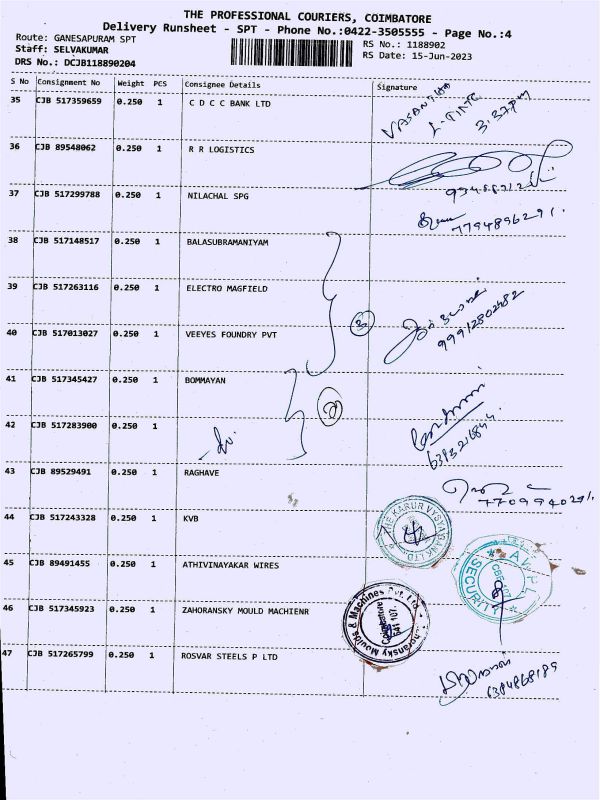 THE PROFESSIONAL COURIERS, COIMBATORE
Delivery Runsheet - SPT - Phone No.:0422-3505555 - Page No.:4
Route: GANESAPURAM SPT
RS No.: 1188902
Staff: SELVAKUMAR
RS Date: 15-Jun-2023
DRS No.: DCJB118890204
S No Consignment No Weight PCS Consignee Details Signature
35 CJB 517359659 0.250 1 C D C C BANK LTD
3:37pm
36 CJB 89548062 0.250 1 R R LOGISTICS
37 CJB 517299788 0.250 1 NILACHAL SPG
7794896291.
38 CJB 517148517 0.250 1 BALASUBRAMANIYAM
39 CJB 517263116 0.250 1 ELECTRO MAGFIELD
99912802482
40 CJB 517013027 0.250 1 VEEYES FOUNDRY PVT
3
41 CJB 517345427 0.250 1 BOMMAYAN
2
42 CJB 517283900 0.250 1
43 CJB 89529491 0.250 1 RAGHAVE
7709940291.
44 CJB 517243328 0.250 1 KVB
THE KARUR VYSYA BANK LTD
45 CJB 89491455 0.250 1 ATHIVINAYAKAR WIRES
SECURITY
46 CJB 517345923 0.250 1 ZAHORANSKY MOULD MACHIENR
Zahoransky Moulds & Machines Pvt. Ltd.
Coimbatore
641 107.
47 CJB 517265799 0.250 1 ROSVAR STEELS P LTD
6384868189